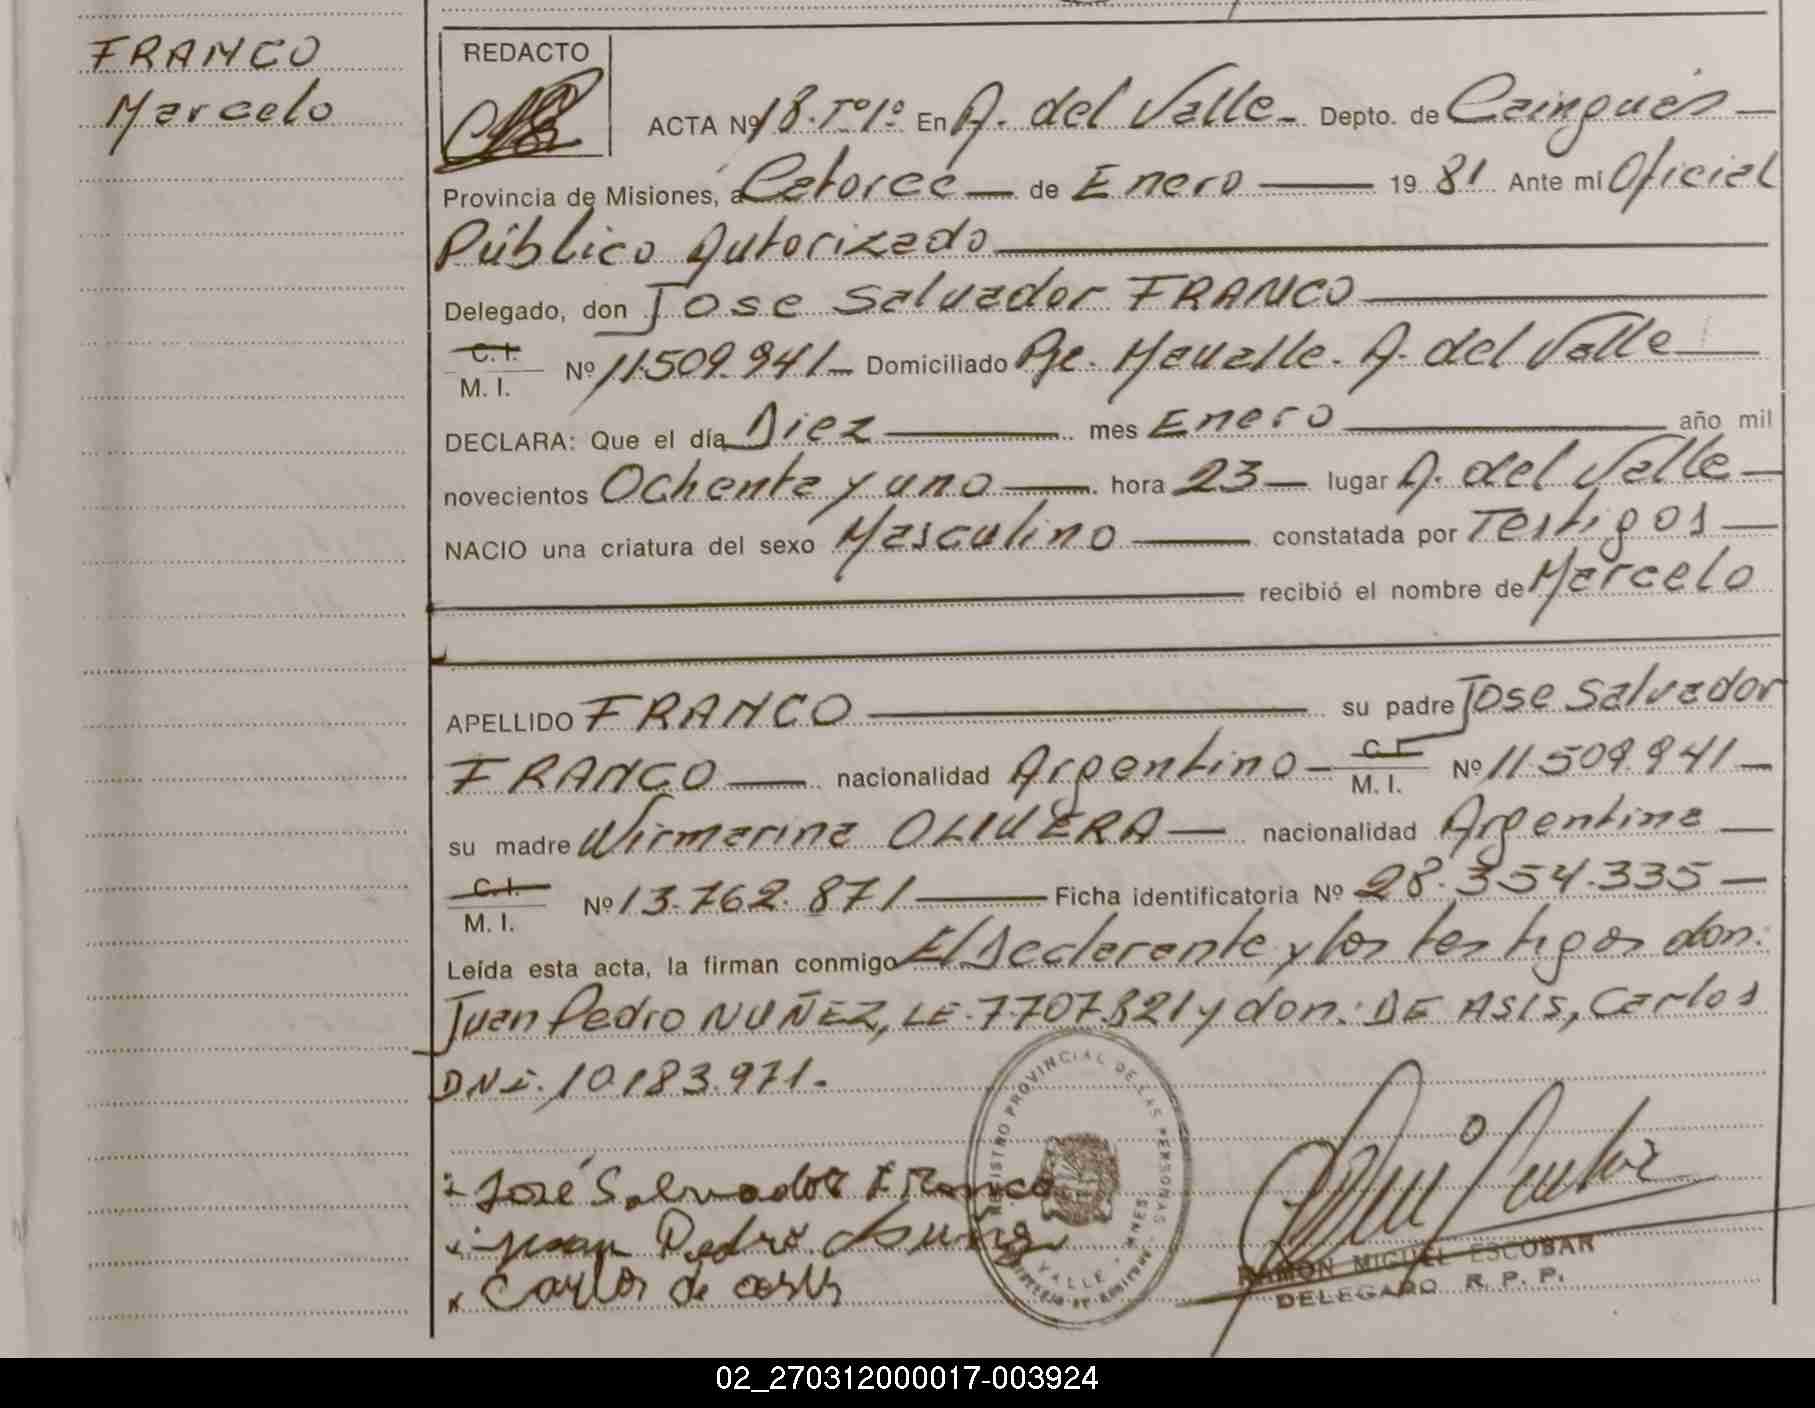 FRANCO
Marcelo
REDACTO
ACTA Nº 18. Tº 1º En A. del Valle Depto. de Cainguás
Provincia de Misiones, a Catorce de Enero 19 81 Ante mí Oficial
Público Autorizado
Delegado, don Jose Salvador FRANCO
C. I.
M. I. Nº 11.509.941 Domiciliado Pje. A. del Valle
DECLARA: Que el día Diez mes Enero año mil
novecientos Ochenta y uno hora 23 lugar A. del Valle
NACIO una criatura del sexo Masculino constatada por Testigos
recibió el nombre de Marcelo
APELLIDO FRANCO su padre Jose Salvador
FRANCO nacionalidad Argentino C. I. M. I. Nº 11.509.941
su madre Wirmarina OLIVERA nacionalidad Argentina
C. I.
M. I. Nº 13.762.871 Ficha identificatoria Nº 28.354.335
Leída esta acta, la firman conmigo El Declarante y los testigos don:
Juan Pedro NUÑEZ, LE. 7.707.821 y don: DE ASIS, Carlos
DNI. 10.183.971.
José Salvador Franco
Juan Pedro
Carlos de asis
REGISTRO PROVINCIAL DE LAS PERSONAS
VALLE - MNES.
RAMON MIGUEL ESCOBAR
DELEGADO R. P. P.
02_270312000017-003924